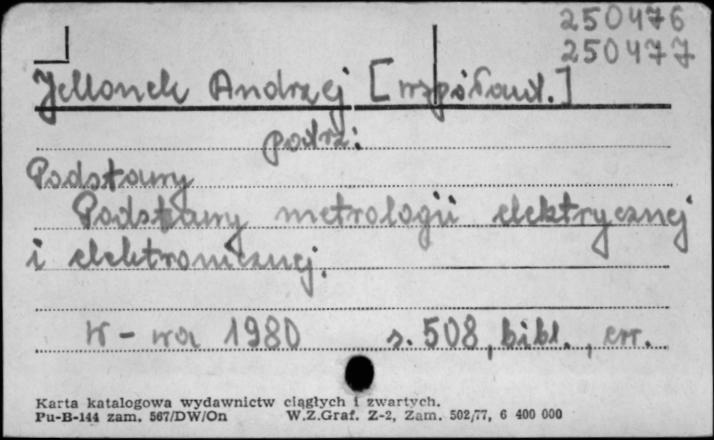 250476
250477
Jellonek Andrzej [współaut.]
podrz:
Podstawy
Podstawy metrologii elektrycznej
i elektronicznej.
W-wa 1980 s. 508, bibl., err.
Karta katalogowa wydawnictw ciągłych i zwartych.
Pu-B-144 zam. 567/DW/On W.Z.Graf. Z-2, Zam. 502/77, 6 400 000